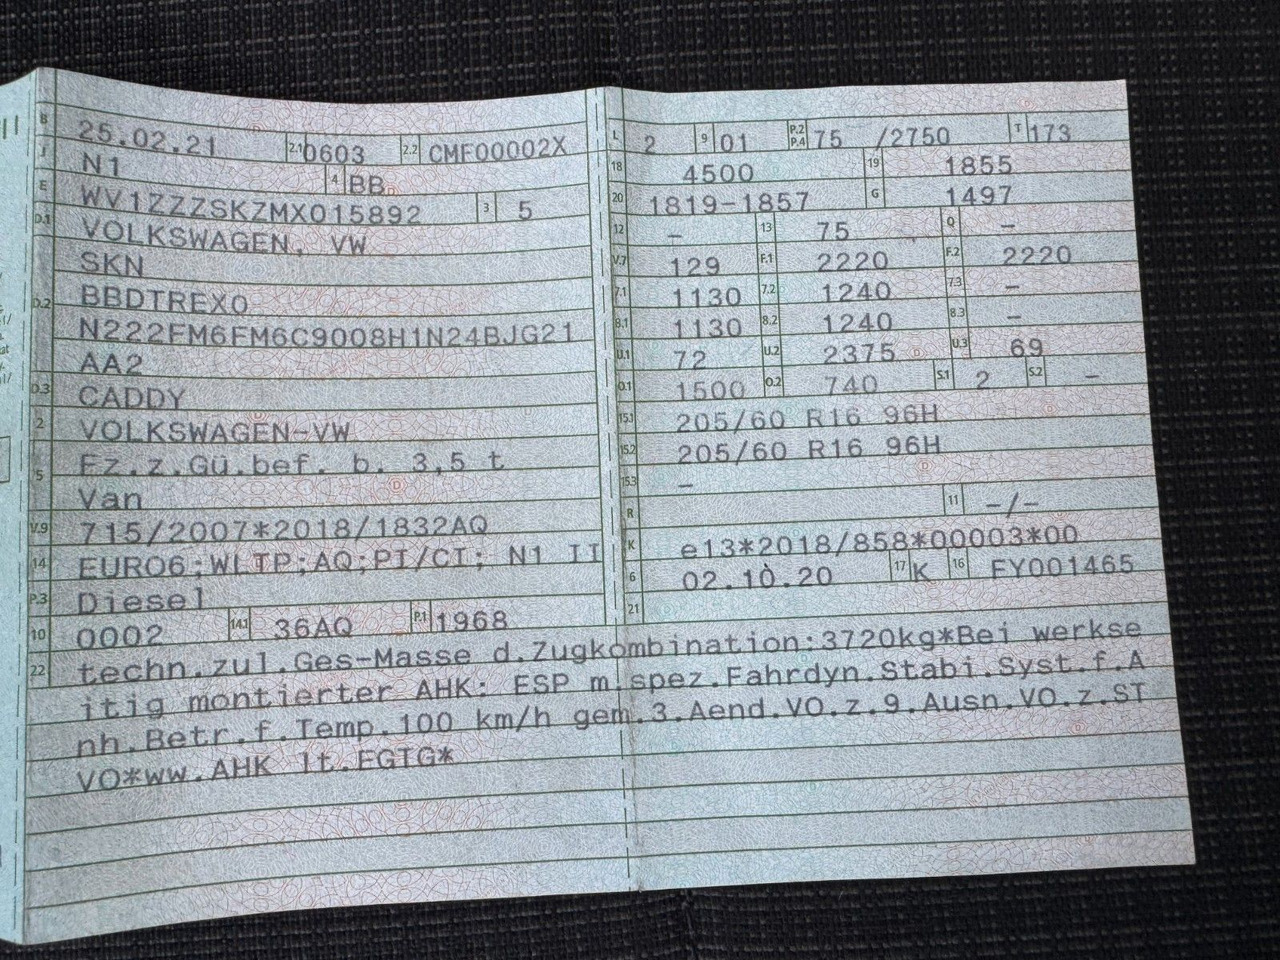 B 25.02.21 2.1 0603 2.2 CMF00002X
J N1 4 BB
E WV1ZZZSKZMX015892 3 5
D.1 VOLKSWAGEN, VW
SKN
D.2 BBDTREX0
N222FM6FM6C9008H1N24BJG21
AA2
D.3 CADDY
2 VOLKSWAGEN-VW
5 Fz.z.Gü.bef. b. 3,5 t
Van
V.9 715/2007*2018/1832AQ
14 EURO6;WLTP;AQ;PI/CI; N1 II
P.3 Diesel
10 0002 14.1 36AQ P.1 1968
L 2 9 01 P.2 P.4 75 /2750 T 173
18 4500 19 1855
20 1819-1857 G 1497
12 – 13 75 Q –
V.7 129 F.1 2220 F.2 2220
7.1 1130 7.2 1240 7.3 –
8.1 1130 8.2 1240 8.3 –
U.1 72 U.2 2375 U.3 69
O.1 1500 O.2 740 S.1 2 S.2 –
15.1 205/60 R16 96H
15.2 205/60 R16 96H
15.3 –
R 11 –/–
K e13*2018/858*00003*00
6 02.10.20 17 K 16 FY001465
21
22 techn.zul.Ges-Masse d.Zugkombination:3720kg*Bei werkse
itig montierter AHK: ESP m.spez.Fahrdyn.Stabi.Syst.f.A
nh.Betr.f.Temp.100 km/h gem.3.Aend.VO.z.9.Ausn.VO.z.ST
VO*ww.AHK lt.EGTG*